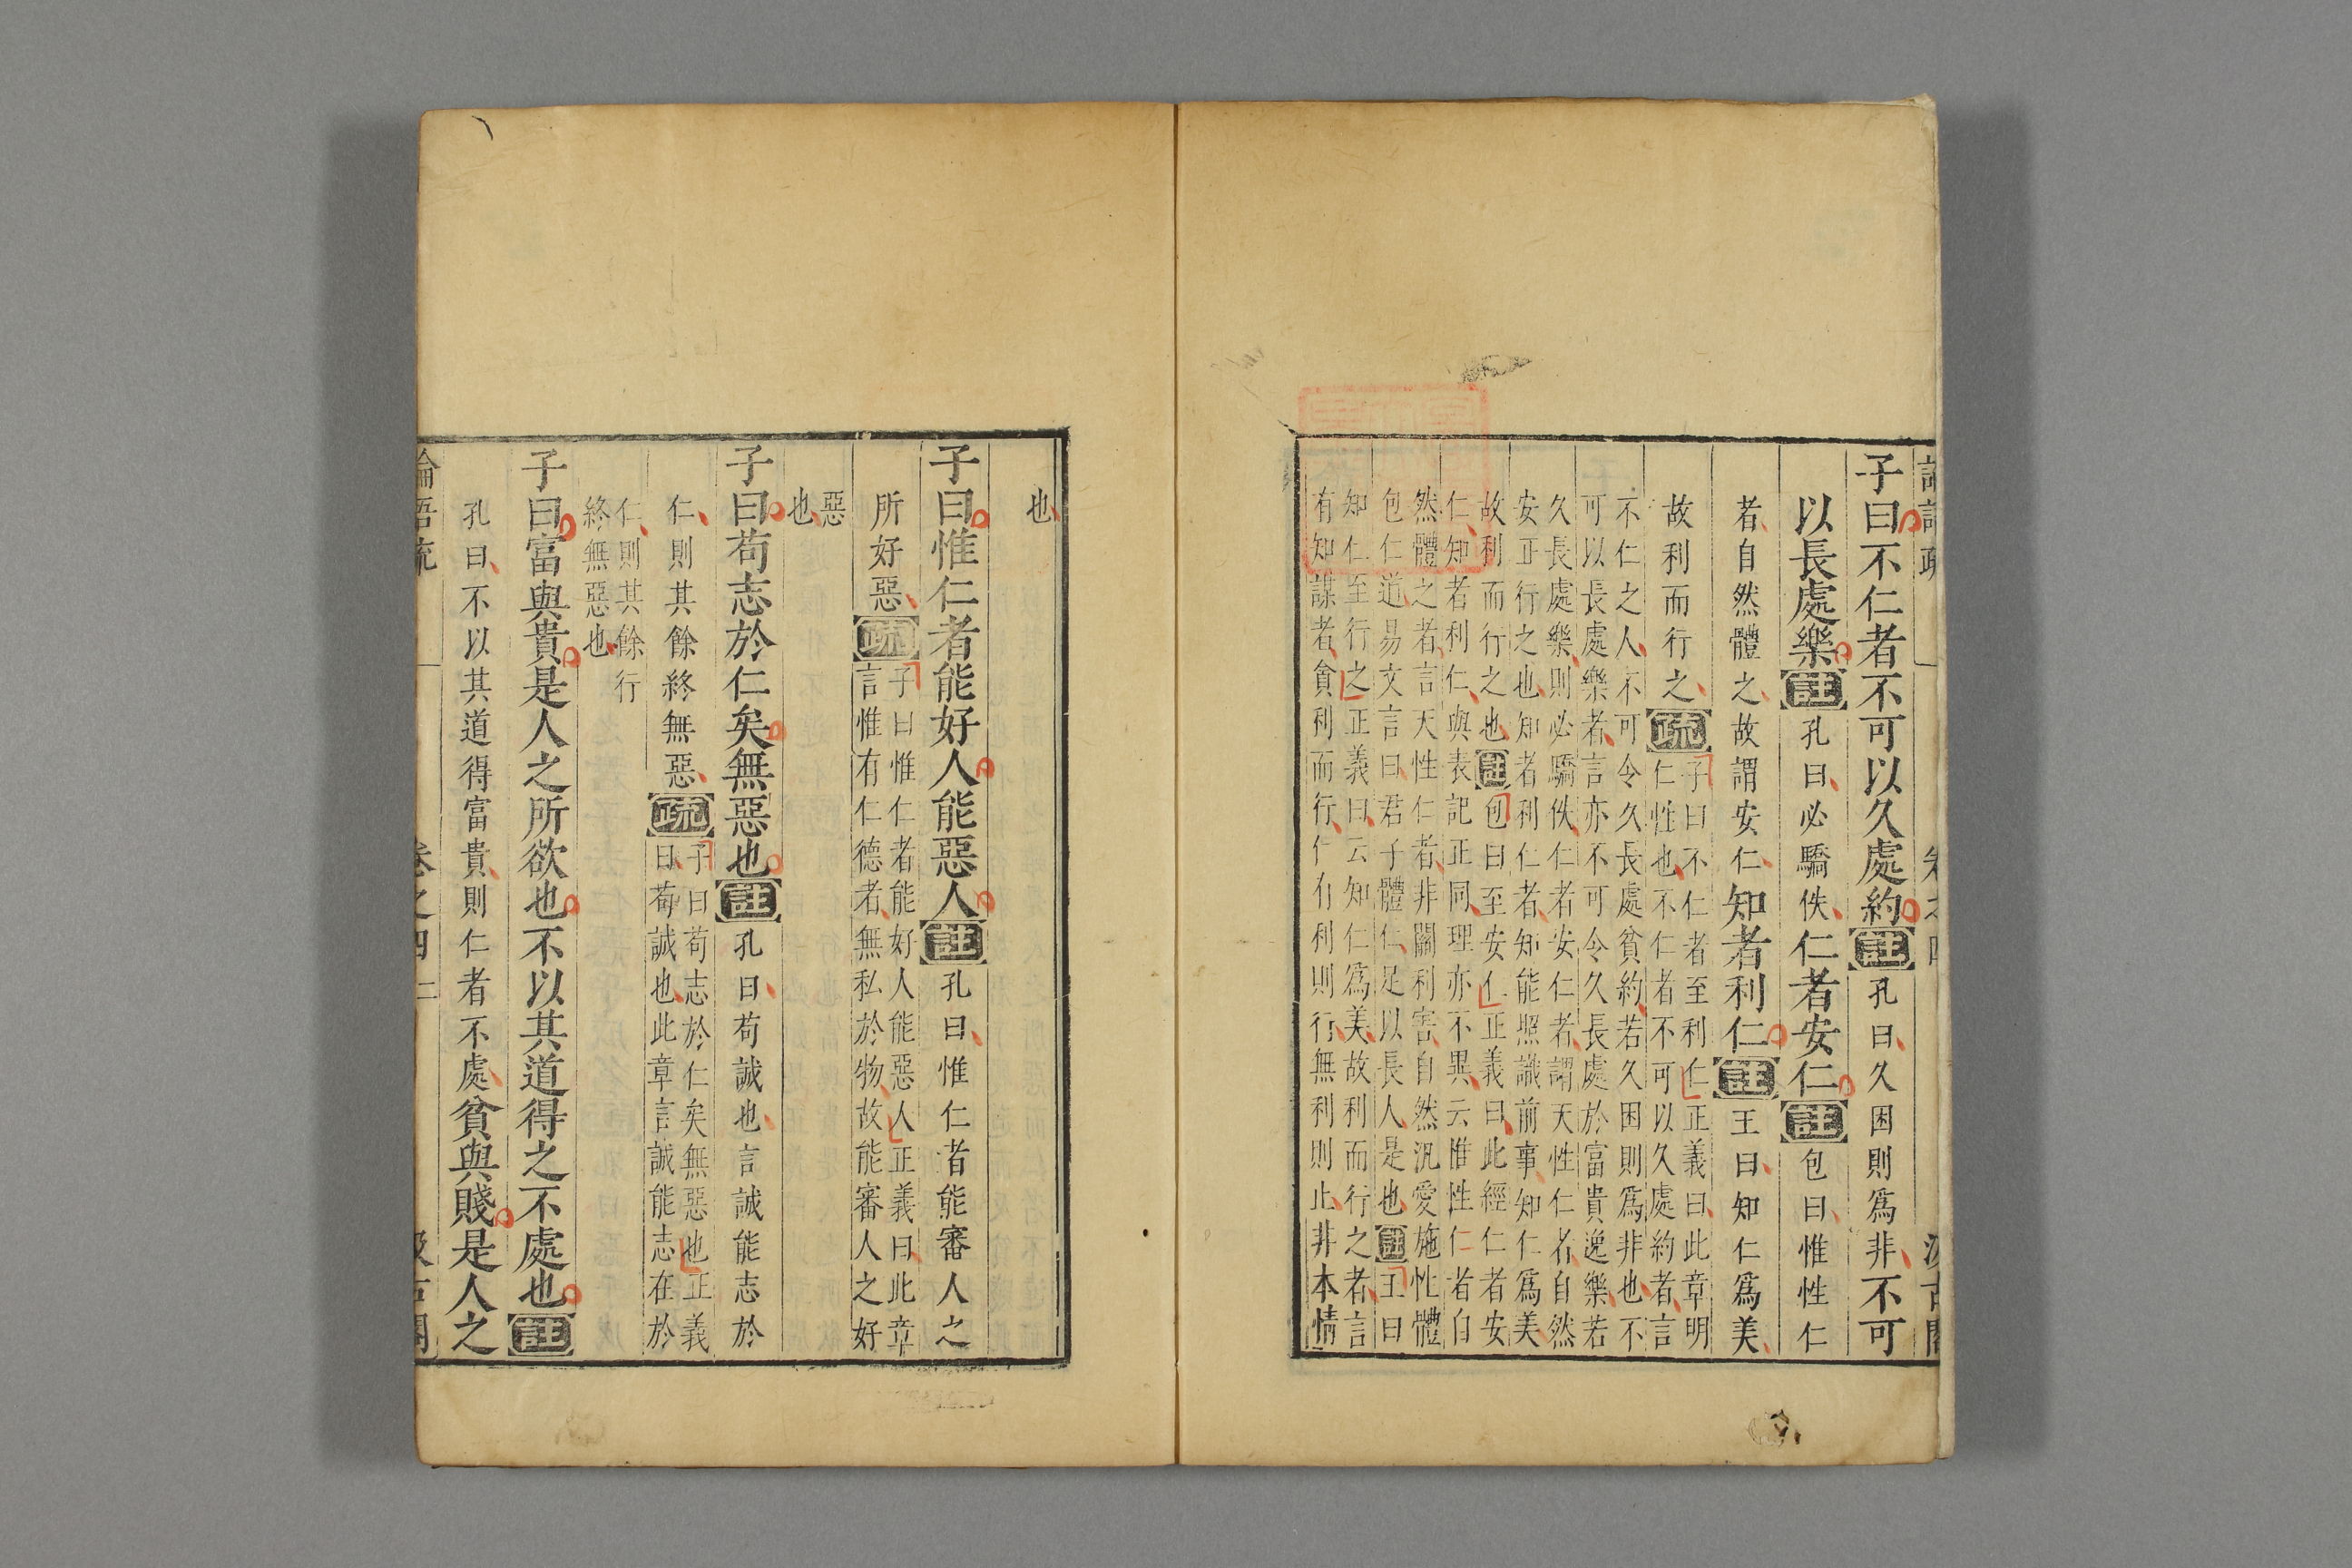 子曰不仁者不可以久處約註孔曰久困則爲非不可
以長處樂註孔曰必驕佚仁者安仁註包曰惟性仁
者自然體之故謂安仁知者利仁註王曰知仁爲美
故利而行之疏子曰不仁者至利仁正義曰此章明
仁性也不仁者不可以久處約者言
不仁之人不可令久長處貧約若久困則爲非也不
可以長處樂者言亦不可令久長處於富貴逸樂若
久長處樂則必驕佚仁者安仁者謂天性仁者自然
安正行之也知者利仁者知能照識前事知仁爲美
故利而行之也註包曰至安仁正義曰此經仁者安
仁知者利仁與表記正同理亦不異云惟性仁者自
然體之者言天性仁者非關利害自然汎愛施性體
包仁道易文言曰君子體仁足以長人是也註王曰
知仁至行之正義曰云知仁爲美故利而行之者言
有知謀者貪利而行仁有利則行無利則止非本情
也
子曰惟仁者能好人能惡人註孔曰惟仁者能審人之
所好惡疏子曰惟仁者能好人能惡人正義曰此章
言惟有仁德者無私於物故能審人之好
惡
也
子曰苟志於仁矣無惡也註孔曰苟誠也言誠能志於
仁則其餘終無惡疏子曰苟志於仁矣無惡也正義
曰苟誠也此章言誠能志在於
仁則其餘行
終無惡也
子曰富與貴是人之所欲也不以其道得之不處也註
孔曰不以其道得富貴則仁者不處貧與賤是人之
論語疏 卷之四 二 汲古閣